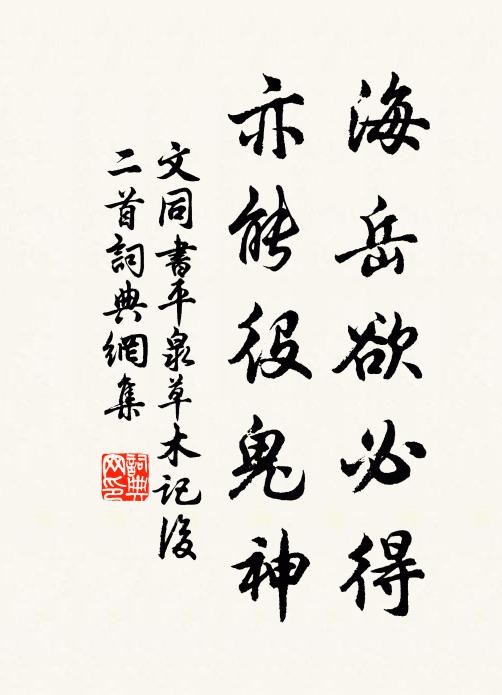 海岳欲必得
亦能役鬼神
文同書平泉草木記後
二首詞典網集
詞典網印